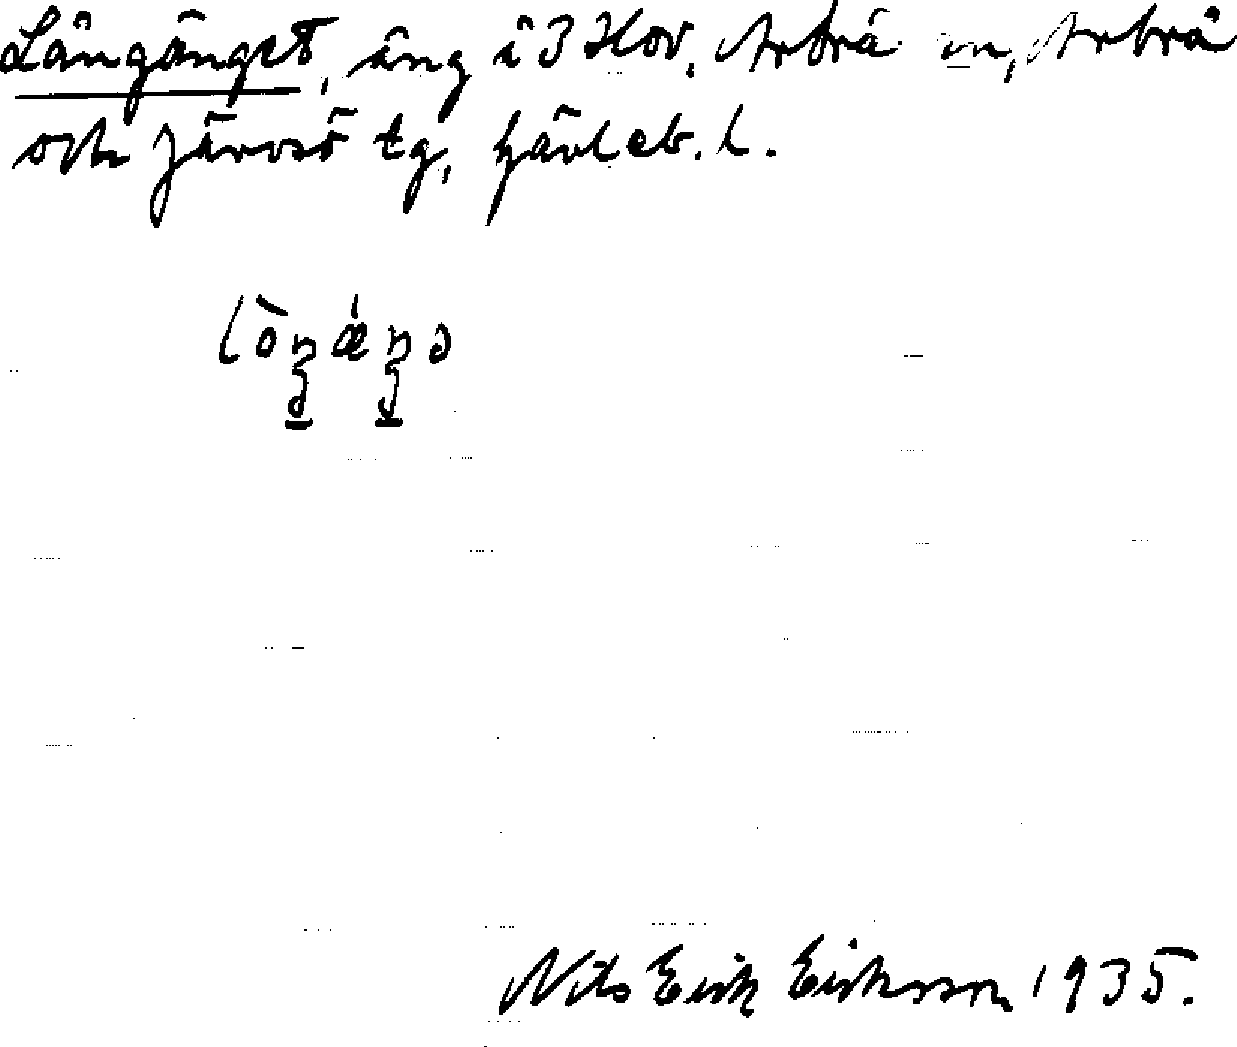 Långänget, äng i 3 Hov, Arbrå sn, Arbrå
och Järvsö tg, Gävleb. l.
lòŋǽŋə
Nils Erik Eriksson 1935.